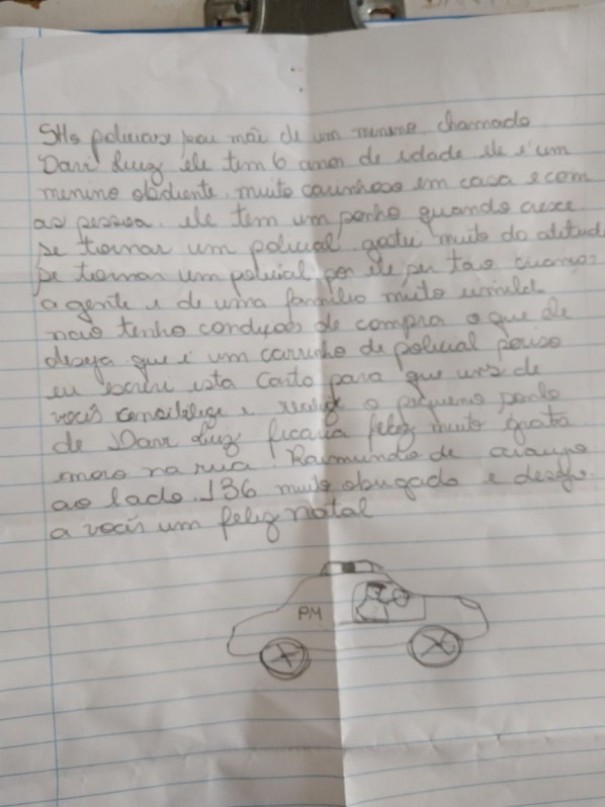 SHs policiais sou mãe de um menino chamado
Davi Luiz ele tem 6 anos de idade ele é um
menino obdiente, muito carinhoso em casa e com
as pessoa. ele tem um sonho quando cresce
se tornar um policial gosta muito do atitud
se tornar um policial por ele ser tão
a gente é de uma familia muito umild
não tenho condições de compra o que ele
deseja que é um carrinho de policial
eu escrevi esta carta para que um de
vocês e realize o pequeno sonho
de Davi Luiz ficaria feliz muito grata
moro na rua Raimundo de araujo
ao lado 136 muito obrigado e desejo
a vocês um feliz natal
PM